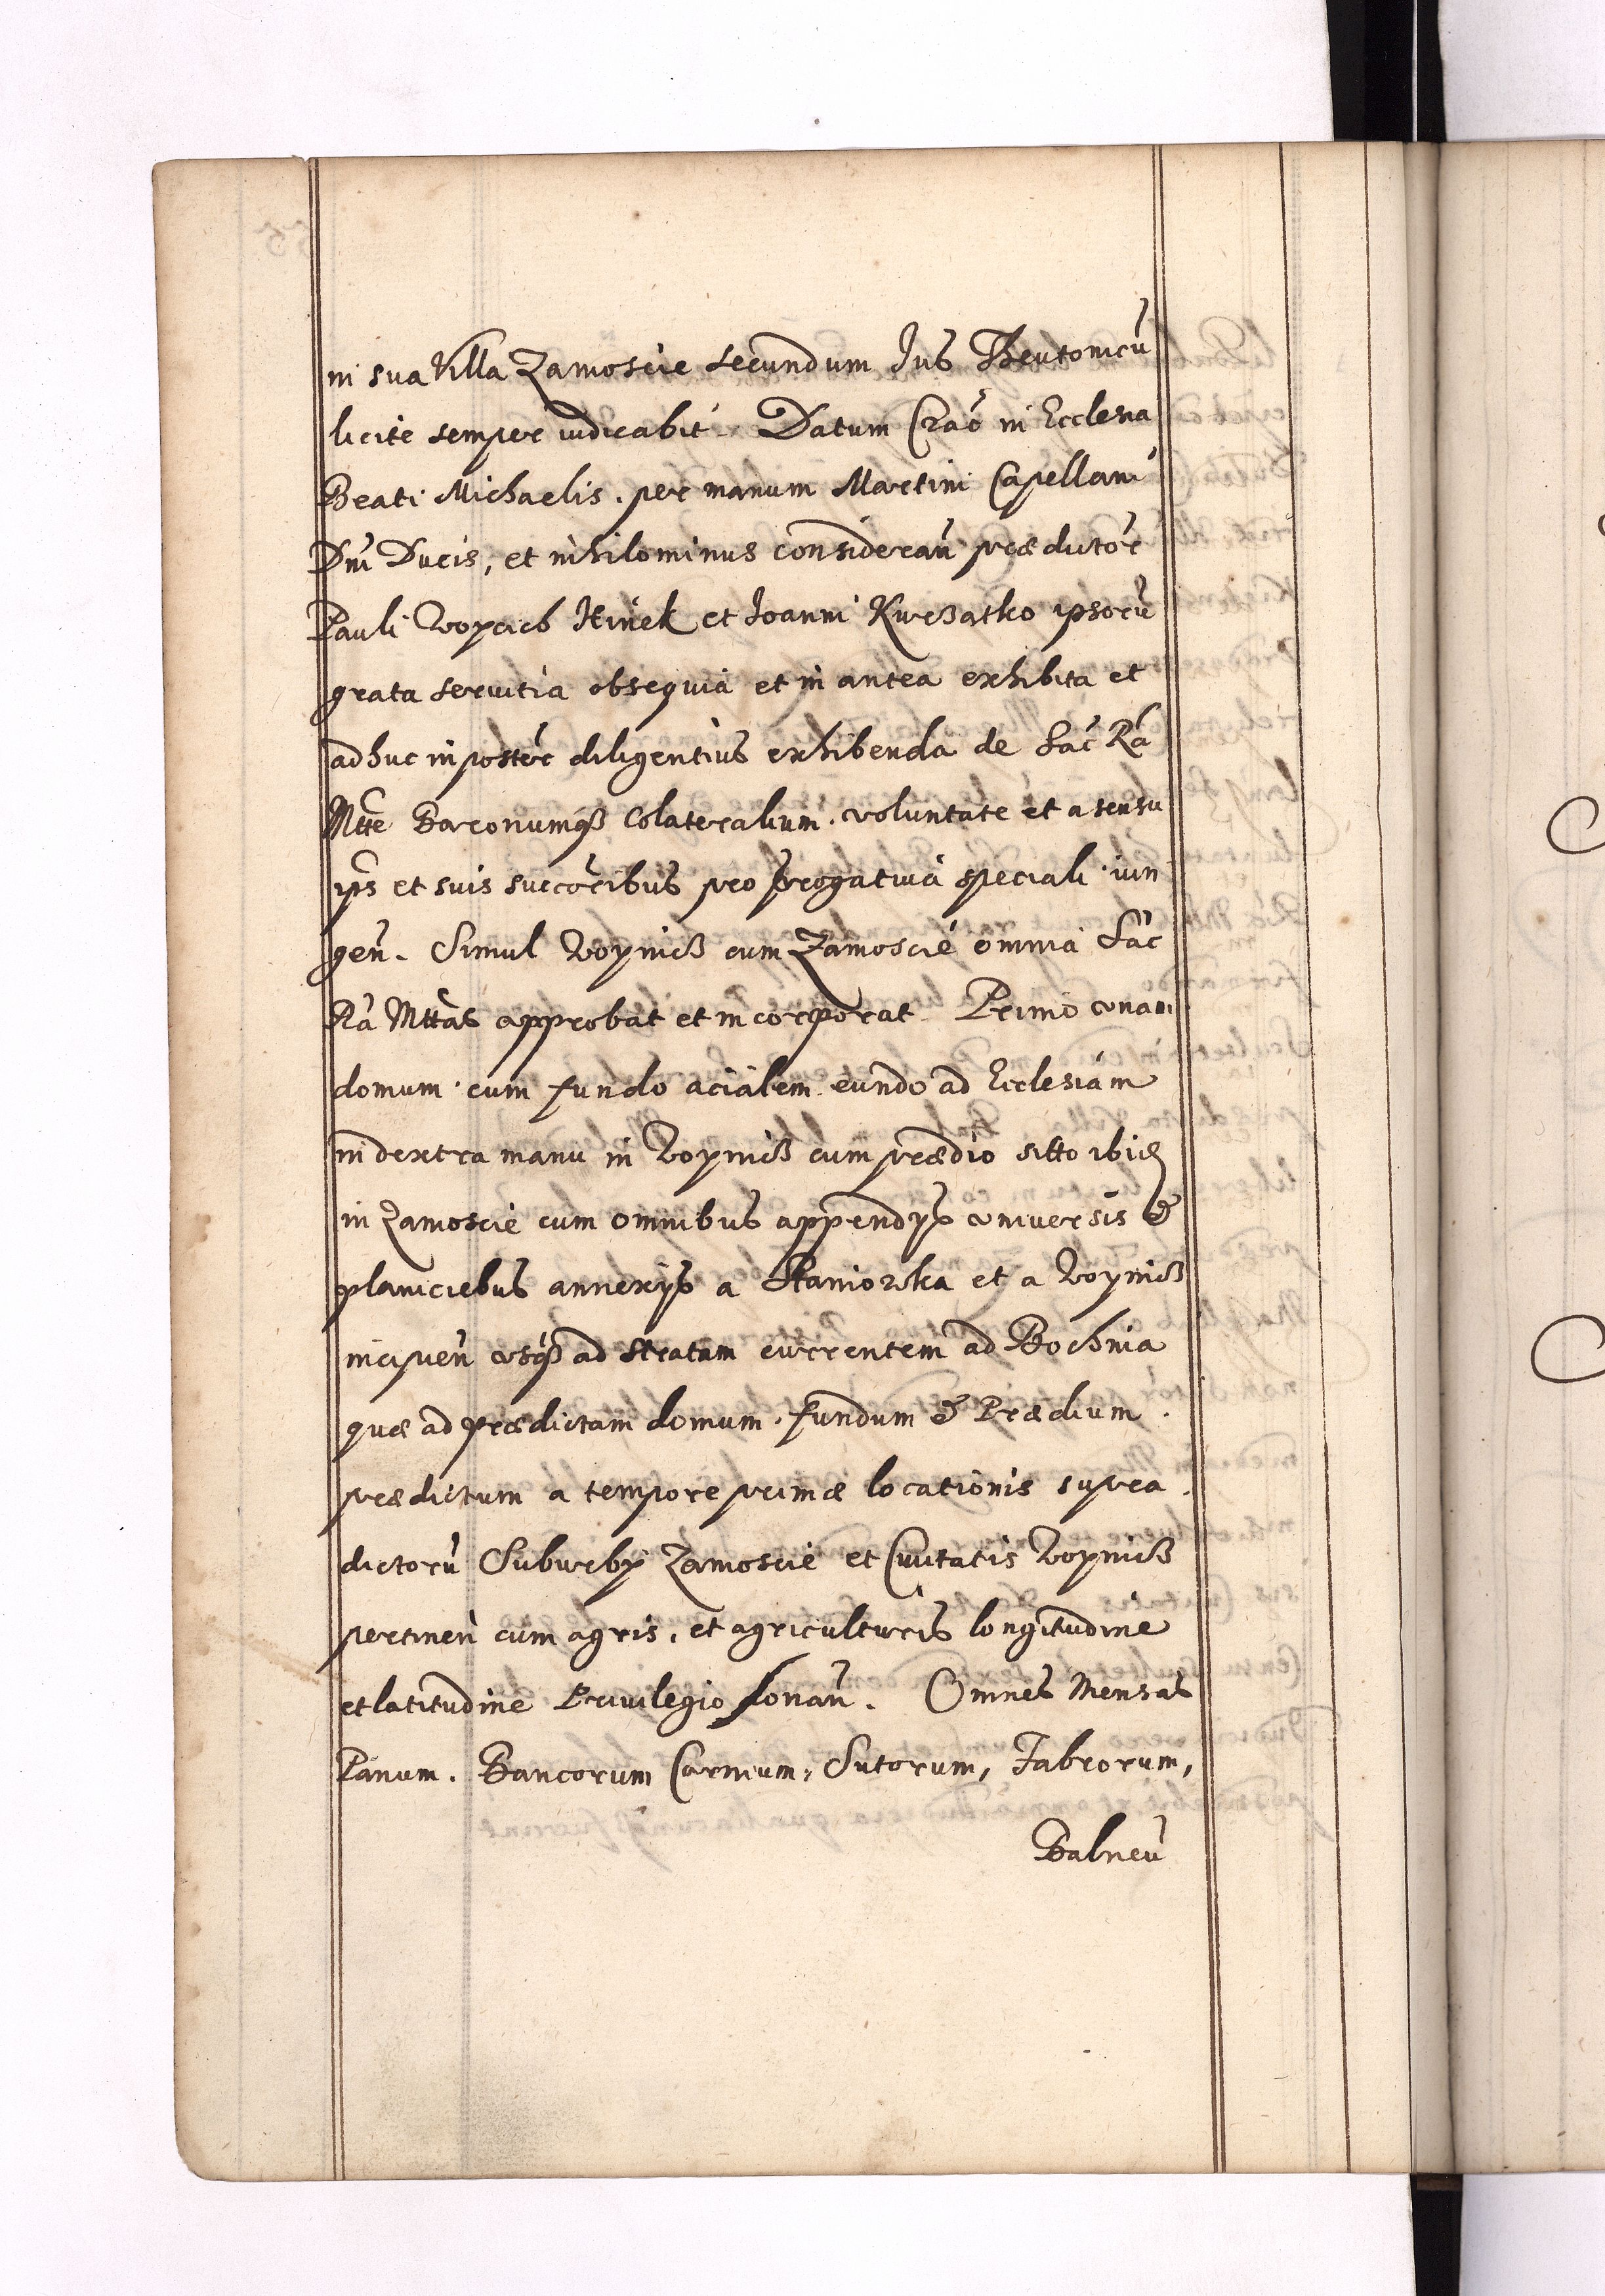 in sua Villa Zamoscie secundum Jus Theutonicũ
licite semper iudicabit. Datum Crac̃ in Ecclesia
Beati Michaelis. per manum Martini Capellani
Dni Ducis, et nihilominus consideran̄ prædictor̃
Pauli Woyciech Hinek et Joanni Kurzatko ipsorũ
grata seruitia obsequia et in antea exhibita et
adhuc in poster̃ diligentius exhibenda de Sac̃ Rã
Mtte Baronumq3 Colateralium. voluntate et asensu
ips et suis succoribus pro prerogatiua speciali iun
gen̄. Simul Woynicz cum Zamoscie omnia Sac̃
Rã Mttas approbat et incorporat. Primo vnam
domum cum fundo acialem eundo ad Ecclesiam
in dextra manu in Woynicz cum prædio sitto ibid
in Zamoscie cum omnibus appendys vniuersis &
planiciebus annexys a Ramorzka et a Woynicz
incipien̄ vsq3 ad stratam currentem ad Bochnia
quæ ad prædictam domum. fundum & Prædium.
prædictum a tempore primæ locationis supra
dictorũ Suburby Zamoscie et Ciuitatis Woynicz
pertinen̄ cum agris, et agriculturis longitudine
et latitudine Priuilegio donan̄. Omnes Mensas
Panum. Bancorum Carnium, Sutorum, Fabrorum,
Balneũ